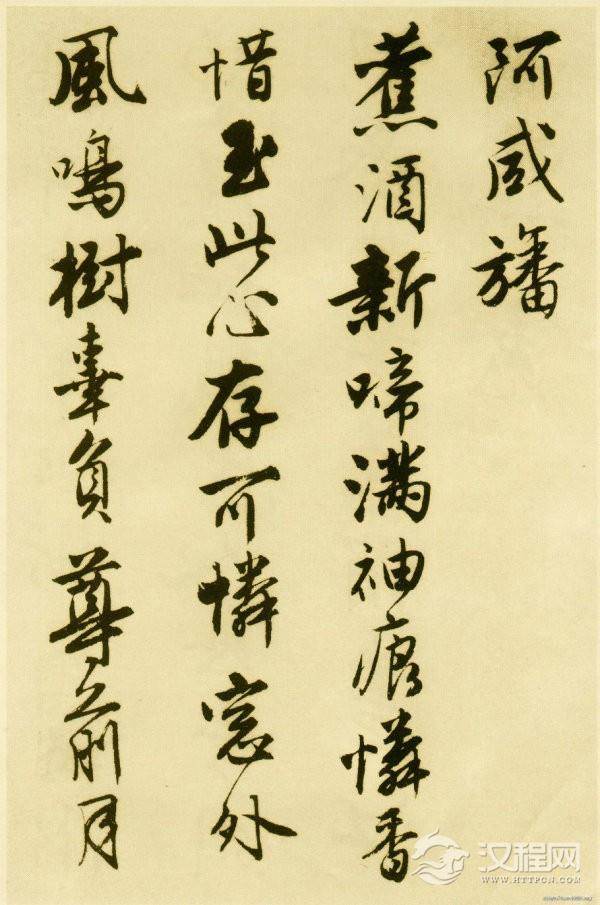 阿咸旛
舊酒新啼滿袖痕憐香
惜玉此心存可憐窓外
風鳴樹辜負尊前月
汉程网
WWW.HTTPCN.COM